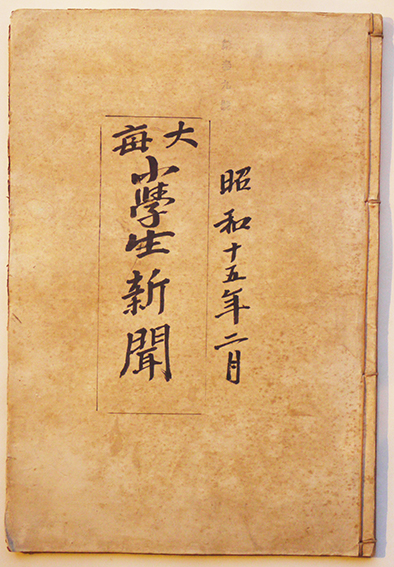 昭和十五年二月
大毎
小學生新聞